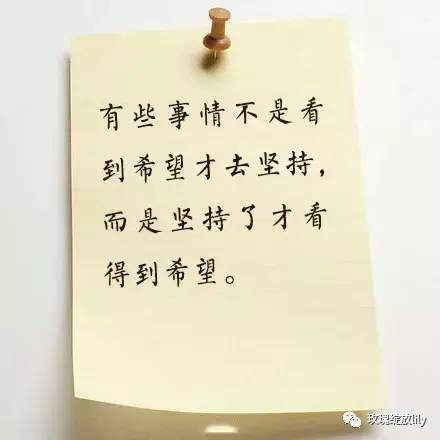 有些事情不是看
到希望才去坚持，
而是坚持了才看
得到希望。
玫瑰绽放lily